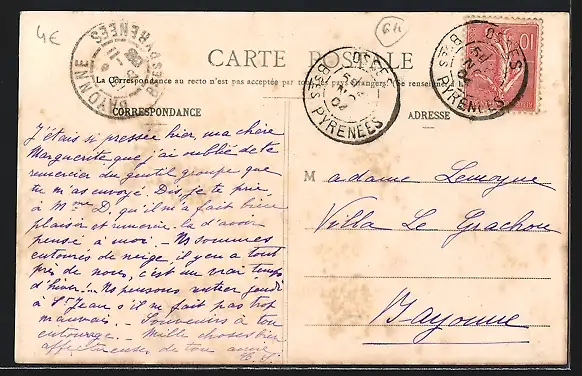 4€
64
CARTE POSTALE
La Correspondance au recto n'est pas acceptée par tous pays étrangers. (Se renseigner
CORRESPONDANCE
ADRESSE
BAYONNE
BSES PYRENEES
OSSES
BSES PYRENEES
OSSES
BSES PYRENEES
10
J'étais si pressée hier, ma chère
Marguerite que j'ai oublié de te
remercier du gentil groupe que
tu m'as envoyé. Dis, je te prie,
à Mme D. qu'il m'a fait bien
plaisir et remercie-la d'avoir
pensé à moi. - Ns sommes
entourés de neige, il y en a tout
près de nous, c'est un vrai temps
d'hiver. - Ns pensons rentrer jeudi
à St Jean s'il ne fait pas trop
mauvais. - Souvenirs à ton
entourage. - Mille choses bien
affectueuses de ton amie
Madame Lemoyne
Villa Le Grachou
Bayonne